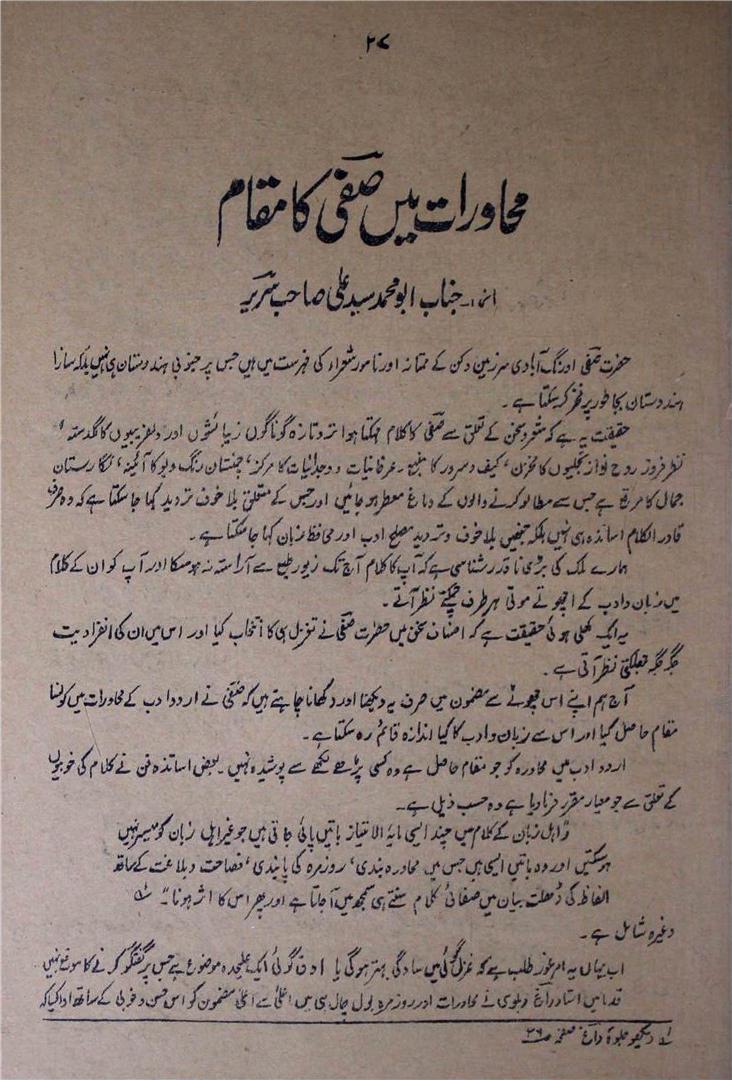 ۲۷
محاورات میں صفی کا مقام
از:۔ جناب ابو محمد سید علی صاحب
حضرت صفی اورنگ آبادی سرزمین دکن کے ممتاز اور نامور شعراء کی فہرست میں ہیں جس پر جنوبی ہندوستان ہی نہیں بلکہ سارا
ہندوستان بجا طور پر فخر کر سکتا ہے۔
حقیقت یہ ہے کہ شعر و سخن کے تعلق سے صفی کا کلام مہکتا ہوا تر و تازہ گوناگوں زیبائشوں اور دلفریبیوں کا گلدستہ،
نظر فروز روح نواز تجلیوں کا مخزن، کیف و سرور کا منبع۔ عرفانیات و وجدانیات کا مرکز، چمنستان رنگ و بو کا آئینہ، نگارستان
جمال کا مرقع ہے جس سے مطالعہ کرنے والوں کے دماغ معطر ہو جائیں اور جس کے متعلق بلا خوف تردید کہا جا سکتا ہے کہ وہ صرف
قادر الکلام اساتذہ ہی نہیں بلکہ جنہیں بلا خوف و تردید مصلح ادب اور محافظ زبان کہا جا سکتا ہے۔
ہمارے ملک کی بڑی ناقدر شناسی ہے کہ آپ کا کلام آج تک زیور طبع سے آراستہ نہ ہو سکا اور آپ کو ان کے کلام
میں زبان و ادب کے اچھوتے موتی ہر طرف چمکتے نظر آتے۔
یہ ایک کھلی ہوئی حقیقت ہے کہ اصناف سخن میں حضرت صفی نے تغزل ہی کا انتخاب کیا اور اس میں ان کی انفرادیت
جگہ جگہ جھلکتی نظر آتی ہے۔
آج ہم اپنے اس چھوٹے سے مضمون میں صرف یہ دیکھنا اور دکھانا چاہتے ہیں کہ صفی نے اردو ادب کے محاورات میں کونسا
مقام حاصل کیا اور اس سے زبان و ادب کا کیا اندازہ قائم رہ سکتا ہے۔
اردو ادب میں محاورہ کو جو مقام حاصل ہے وہ کسی پڑھے لکھے سے پوشیدہ نہیں۔ بعض اساتذہ فن نے کلام کی خوبیوں
کے تعلق سے جو معیار مقرر فرمادیا ہے وہ حسب ذیل ہے۔
"اہل زبان کے کلام میں چند ایسی مابہ الامتیاز باتیں پائی جاتی ہیں جو غیر اہل زبان کو میسر نہیں
ہو سکتیں اور وہ باتیں ایسی ہیں جس میں محاورہ بندی، روزمرہ کی پابندی، فصاحت و بلاغت کے ساتھ
الفاظ کی ڈھلت بیان میں صفائی کلام سنتے ہی سمجھ میں آجاتا ہے اور پھر اس کا اثر ہونا۔" ؎۱
وغیرہ شامل ہے۔
اب یہاں یہ امر غور طلب ہے کہ غزل گوئی میں سادگی بہتر ہوگی یا ادق گوئی ایک علیحدہ موضوع ہے جس پر گفتگو کرنے کا موقع نہیں
قدما میں استاد داغ دہلوی نے محاورات اور روزمرہ بول چال ہی میں اعلیٰ سے اعلیٰ مضمون کو اس حسن و خوبی کے ساتھ ادا کیا کہ
؎۱ دیکھو جلوۂ داغ صفحہ ۳۶